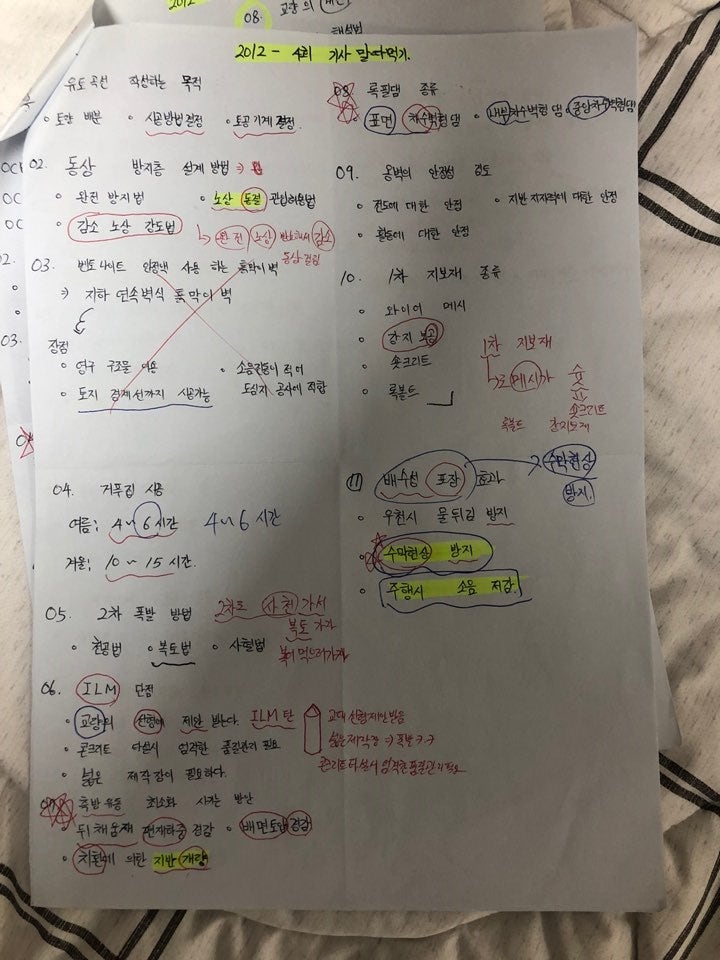 08.
2012 - 4회 기사 말따먹기.
유토곡선 작성하는 목적
• 토량 배분 • 시공방법결정 • 토공기계 결정.
02. 동상 방지층 설계 방법 ⇒
• 완전 방지법 • 노상 동결 관입허용법
• 감소 노상 강도법
↳ 완전 노상 감소
03. 벤토나이트 안정액 사용 하는 흙막이벽
⇒ 지하 연속벽식 흙막이 벽
장점
• 영구 구조물 이용 • 소음진동이 적어
• 토지 경계선까지 시공가능 도심지 공사에 적합
04. 거푸집 시용
여름: 4~6시간 4~6 시간
겨울: 10 ~ 15 시간.
05. 2차 폭발 방법 2차로 사천 가서
복토 가자
• 천공법 • 복토법 • 사혈법
06. ILM 단점
• 교량의 선형에 제한 받는다. ILM 단
• 콘크리트 타설시 엄격한 품질관리 필요
• 넓은 제작장이 필요하다.
교대 선형제한받음
넓은제작장
콘크리트타설시 엄격한품질관리필요
07. 측방유동 최소화 시키는 방안
뒤채움재 편재하중 경감 • 배면토압경감
• 치환에 의한 지반 개량
08 록필댐 종류
• 표면 차수벽형 댐 • 내부차수벽형 댐 • 중앙차수벽형댐
09. 옹벽의 안정성 검토
• 전도에 대한 안정 • 지반 지지력에 대한 안정
• 활동에 대한 안정
10. 1차 지보재 종류
• 와이어 메시
• 강지 보공
• 숏크리트
• 록볼트
1차 지보재
↳로메시가 숏
숏크리트
록볼트 강지보재
11 배수성 포장 효과 → 수막현상
방지.
• 우천시 물튀김 방지
• 수막현상 방지
• 주행시 소음 저감.